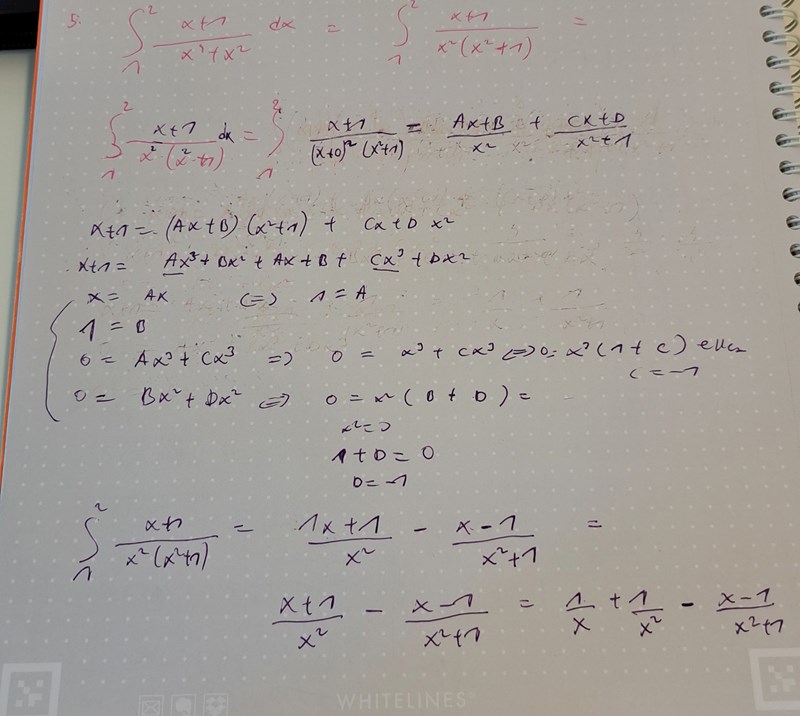 5. ∫₁² x+1 / x³+x² dx = ∫₁² x+1 / x²(x²+1) =
∫₁² x+1 / x²(x²+1) dx = ∫₁² x+1 / (x+0)²(x²+1) = Ax+B / x² + Cx+D / x²+1
x+1 = (Ax+B)(x²+1) + Cx+D x²
x+1 = Ax³+Bx²+Ax+B+Cx³+Dx²
x = Ax <=> 1 = A
1 = B
0 = Ax³+Cx³ => 0 = x³+Cx³ <=> 0 = x³(1+C) eller
C = -1
0 = Bx²+Dx² <=> 0 = x²(B+D) =
x²=0
1+D = 0
D = -1
∫₁² x+1 / x²(x²+1) = 1x+1 / x² - x-1 / x²+1 =
x+1 / x² - x-1 / x²+1 = 1/x + 1/x² - x-1 / x²+1
WHITELINES®